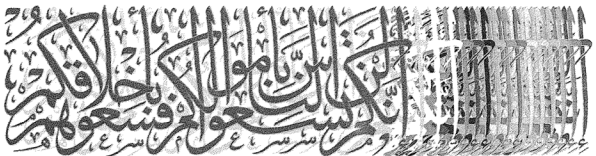 إنكم لن تسعوا الناس بأموالكم فسعوهم بأخلاقكم